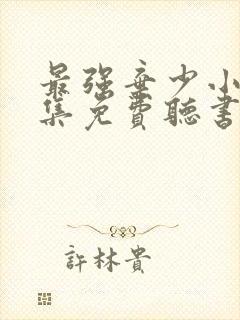 最强弃少小
集免費聽書
許林貴